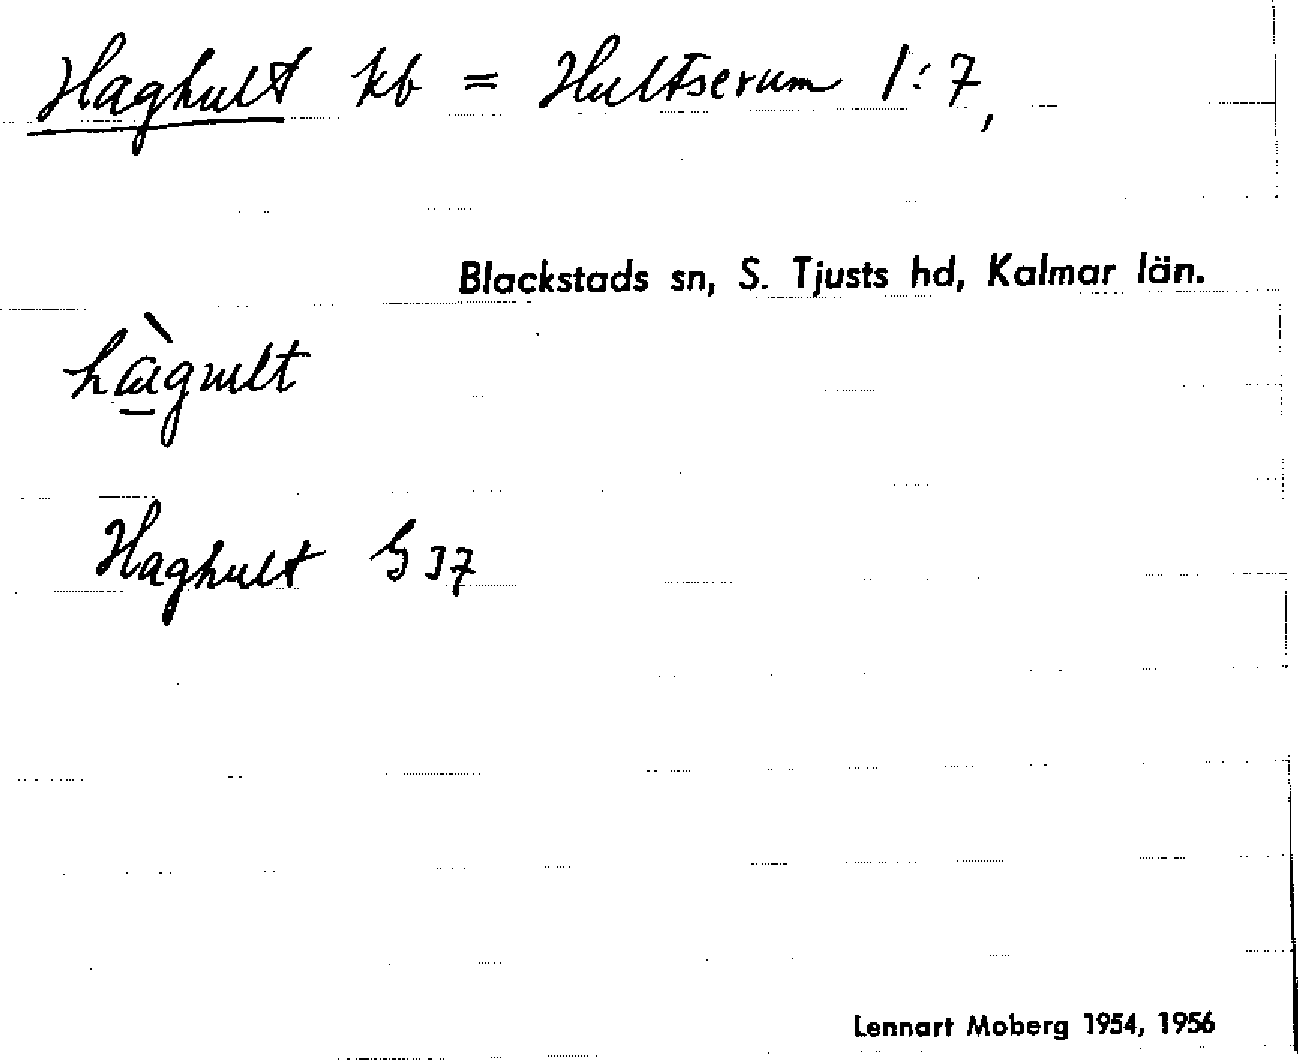 Haghult kb = Hultserum 1:7,
Blackstads sn, S. Tjusts hd, Kalmar län.
hàgult
Haghult G 37
Lennart Moberg 1954, 1956